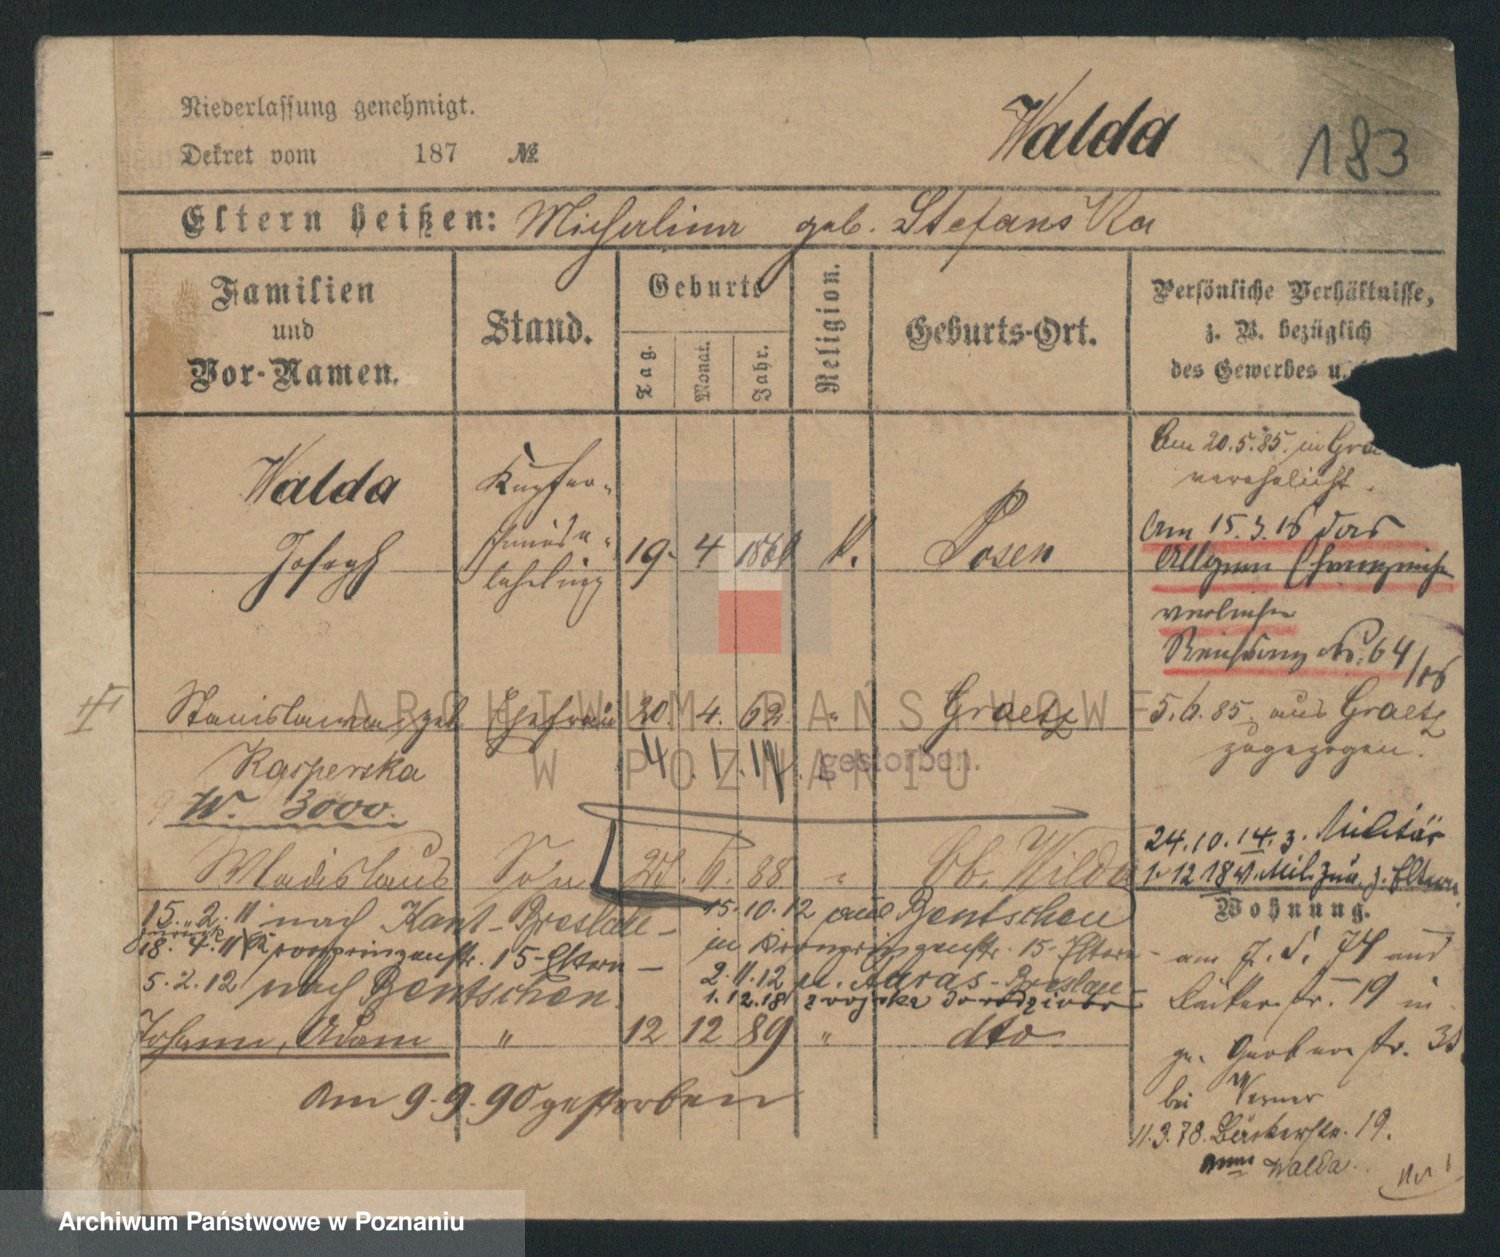 Niederlassung genehmigt.
Dekret vom 187 №
Walda
183
Eltern heißen: Michalina geb. Stefanska
Familien und Vor-Namen.
Stand.
Geburts
Tag. Monat. Jahr.
Religion.
Geburts-Ort.
Persönliche Verhältnisse,
z. B. bezüglich
des Gewerbes u.
Walda
Joseph
Kupfer-
schmiede-
lehrling
19. 4 186
k.
Posen
Am 20.5.85. in Gra
verehelicht.
Am 15.3.16 das
Allgem Ehrenzeichen
verliehen
No. 64/16
Stanislawa geb. Ehefrau 20. 4. 62 " Graetz
Kasperska
4. 1. 19 gestorben.
W. 3000.
5.6.85. aus Graetz
zugezogen.
Wladislaus Sohn 6. 88 " Ob. Wilda
24.10.14. z. Militär
1.12.18 v. Mil. zur. z. Eltern
15. 2. 11 nach Kant-Breslau -
zurück
18. 4. 11 Kronprinzenstr. 15 - Eltern -
5.2.12 nach Bentschen.
15.10.12 aus Bentschen
in Kronprinzenstr. 15 - Eltern -
2.11.12 n. Auras - Breslau
1.12.18
Johann, Adam " 12 12 89 " dto
am 9.9.90 gestorben
Wohnung.
74 und
Bäckerstr. 19 in
gr. Gerberstr. 38
bei Verner
11.3.78. Bäckerstr. 19.
Walda.
ARCHIWUM PAŃSTWOWE
W POZNANIU
Archiwum Państwowe w Poznaniu